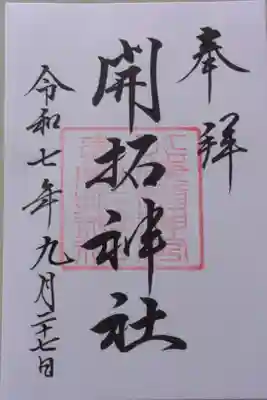 奉拝
開拓神社
令和七年九月二十七日